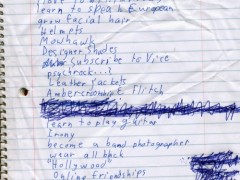 learn to speak European
grow facial hair
Helmets
Mowhawk
Designer Shades
Subscribe to Vice
psychrock...?
Leather jackets
Ambercrombie Flitch
learn to play guitar
Irony
become a band photographer
wear all black
"Hollywood"
Online friendships